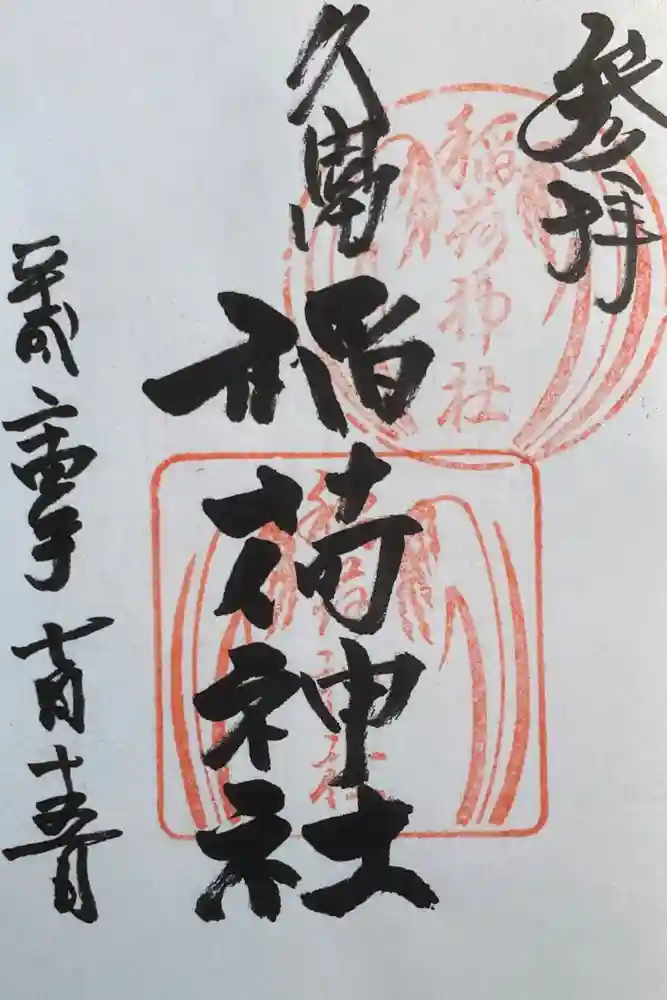 参拝
稲荷神社
久富稲荷神社
稲荷神社
平成二十 年 月十五日